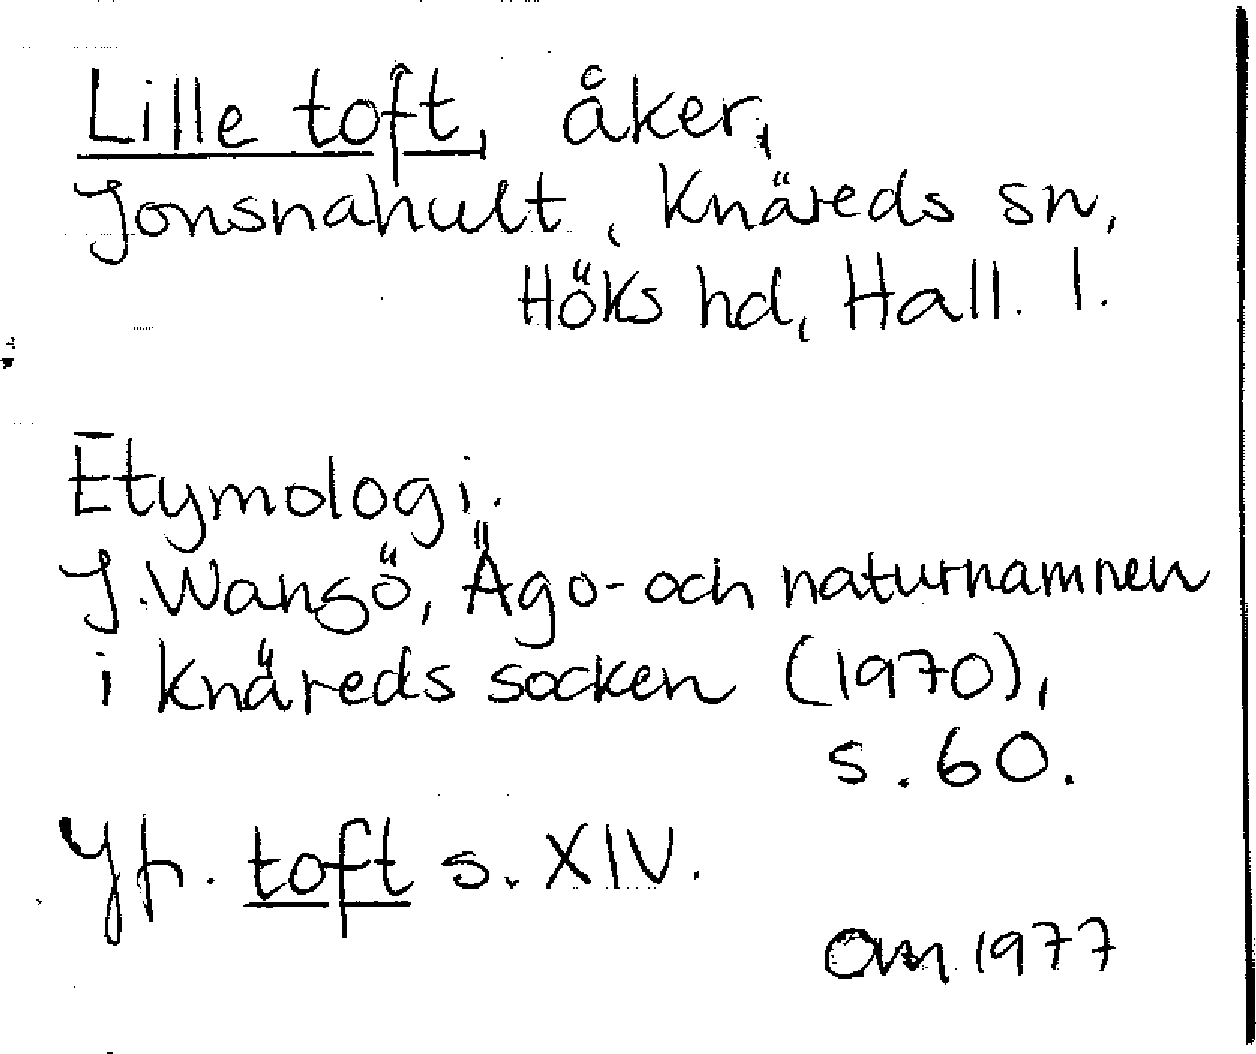 Lille toft, åker,
Jonsnahult, Knäreds sn,
Höks hd, Hall. l.
Etymologi.
J. Wangö, Ägo- och naturnamnen
i Knäreds socken (1970),
s. 60.
Jfr. toft s. XIV.
Om 1977